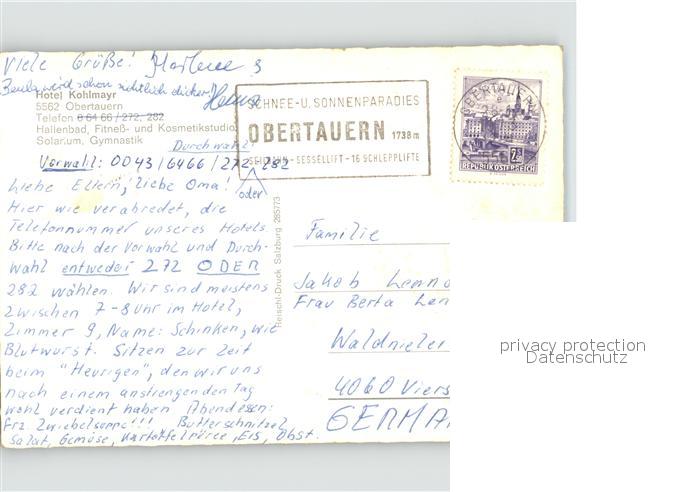 Viele Grüße! Marlene &
Beule wird schon sichtlich dicker! Heinz
Hotel Kohlmayr
5562 Obertauern
Telefon 0 64 66 / 272, 282
Hallenbad, Fitneß- und Kosmetikstudio,
Solarium, Gymnastik
Durchwahl:
Vorwahl: 0043/6466/272, 282
oder
Liebe Eltern, liebe Oma!
Hier wie verabredet, die
Telefonnummer unseres Hotels.
Bitte nach der Vorwahl und Durch-
wahl entweder 272 ODER
282 wählen. Wir sind meistens
zwischen 7-8 Uhr im Hotel,
Zimmer 9, Name: Schinken, wie
Blutwurst. Sitzen zur Zeit
beim "Heurigen", den wir uns
nach einem anstrengenden Tag
wohl verdient haben Abendessen:
Frz. Zwiebelsuppe!!! Butterschnitzel,
Salat, Gemüse, Kartoffelpüree, Eis, Obst.
SCHNEE-U. SONNENPARADIES
OBERTAUERN 1738 m
SEILBAHN-SESSELLIFT-16 SCHLEPPLIFTE
OBERTAUERN
2 S
REPUBLIK ÖSTERREICH
Reischl-Druck Salzburg 285773
Familie
Jakob Lenno
Frau Berta Len
Waldnieler
4060 Viers
GERMA
privacy protection
Datenschutz